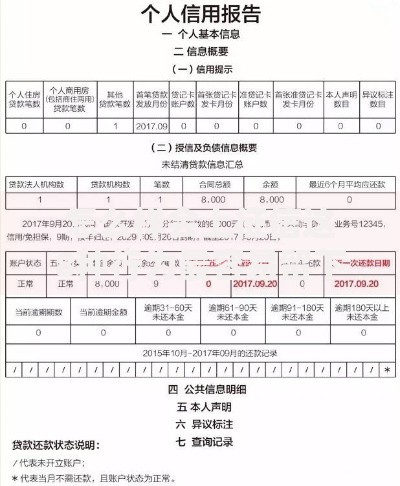 个人信用报告
一 个人基本信息
二 信息概要
（一）信用提示
个人住房贷款笔数 个人商用房(包括商住两用)贷款笔数 其他贷款笔数 首笔贷款发放月份 贷记卡账户数 首张贷记卡发卡月份 准贷记卡账户数 首张准贷记卡发卡月份 本人声明数目 异议标注数目
0 0 1 2017.09 0 0 0 0 0 0
（二）授信及负债信息概要
未结清贷款信息汇总
贷款法人机构数 贷款机构数 笔数 合同总额 余额 最近6个月平均应还款
1 1 1 8,000 8,000 0
2017年9月20 业务号12345,
信用/免担保, 9期,
账户状态 还款 一次还款日期
正常 正常 8,000 9 0 2017.09.20 0 2017.09.20
当前逾期期数 当前逾期金额 逾期31-60天未还本金 逾期61-90天未还本金 逾期91-180天未还本金 逾期180天以上未还本金
0 0 0 0 0 0
2015年10月-2017年09月的还款记录
/ / / / / / / / / / / / / / / / / / / / / / / *
四 公共信息明细
五 本人声明
六 异议标注
七 查询记录
贷款还款状态说明：
/ 代表未开立账户；
* 代表当月不需还款，且账户状态为正常。